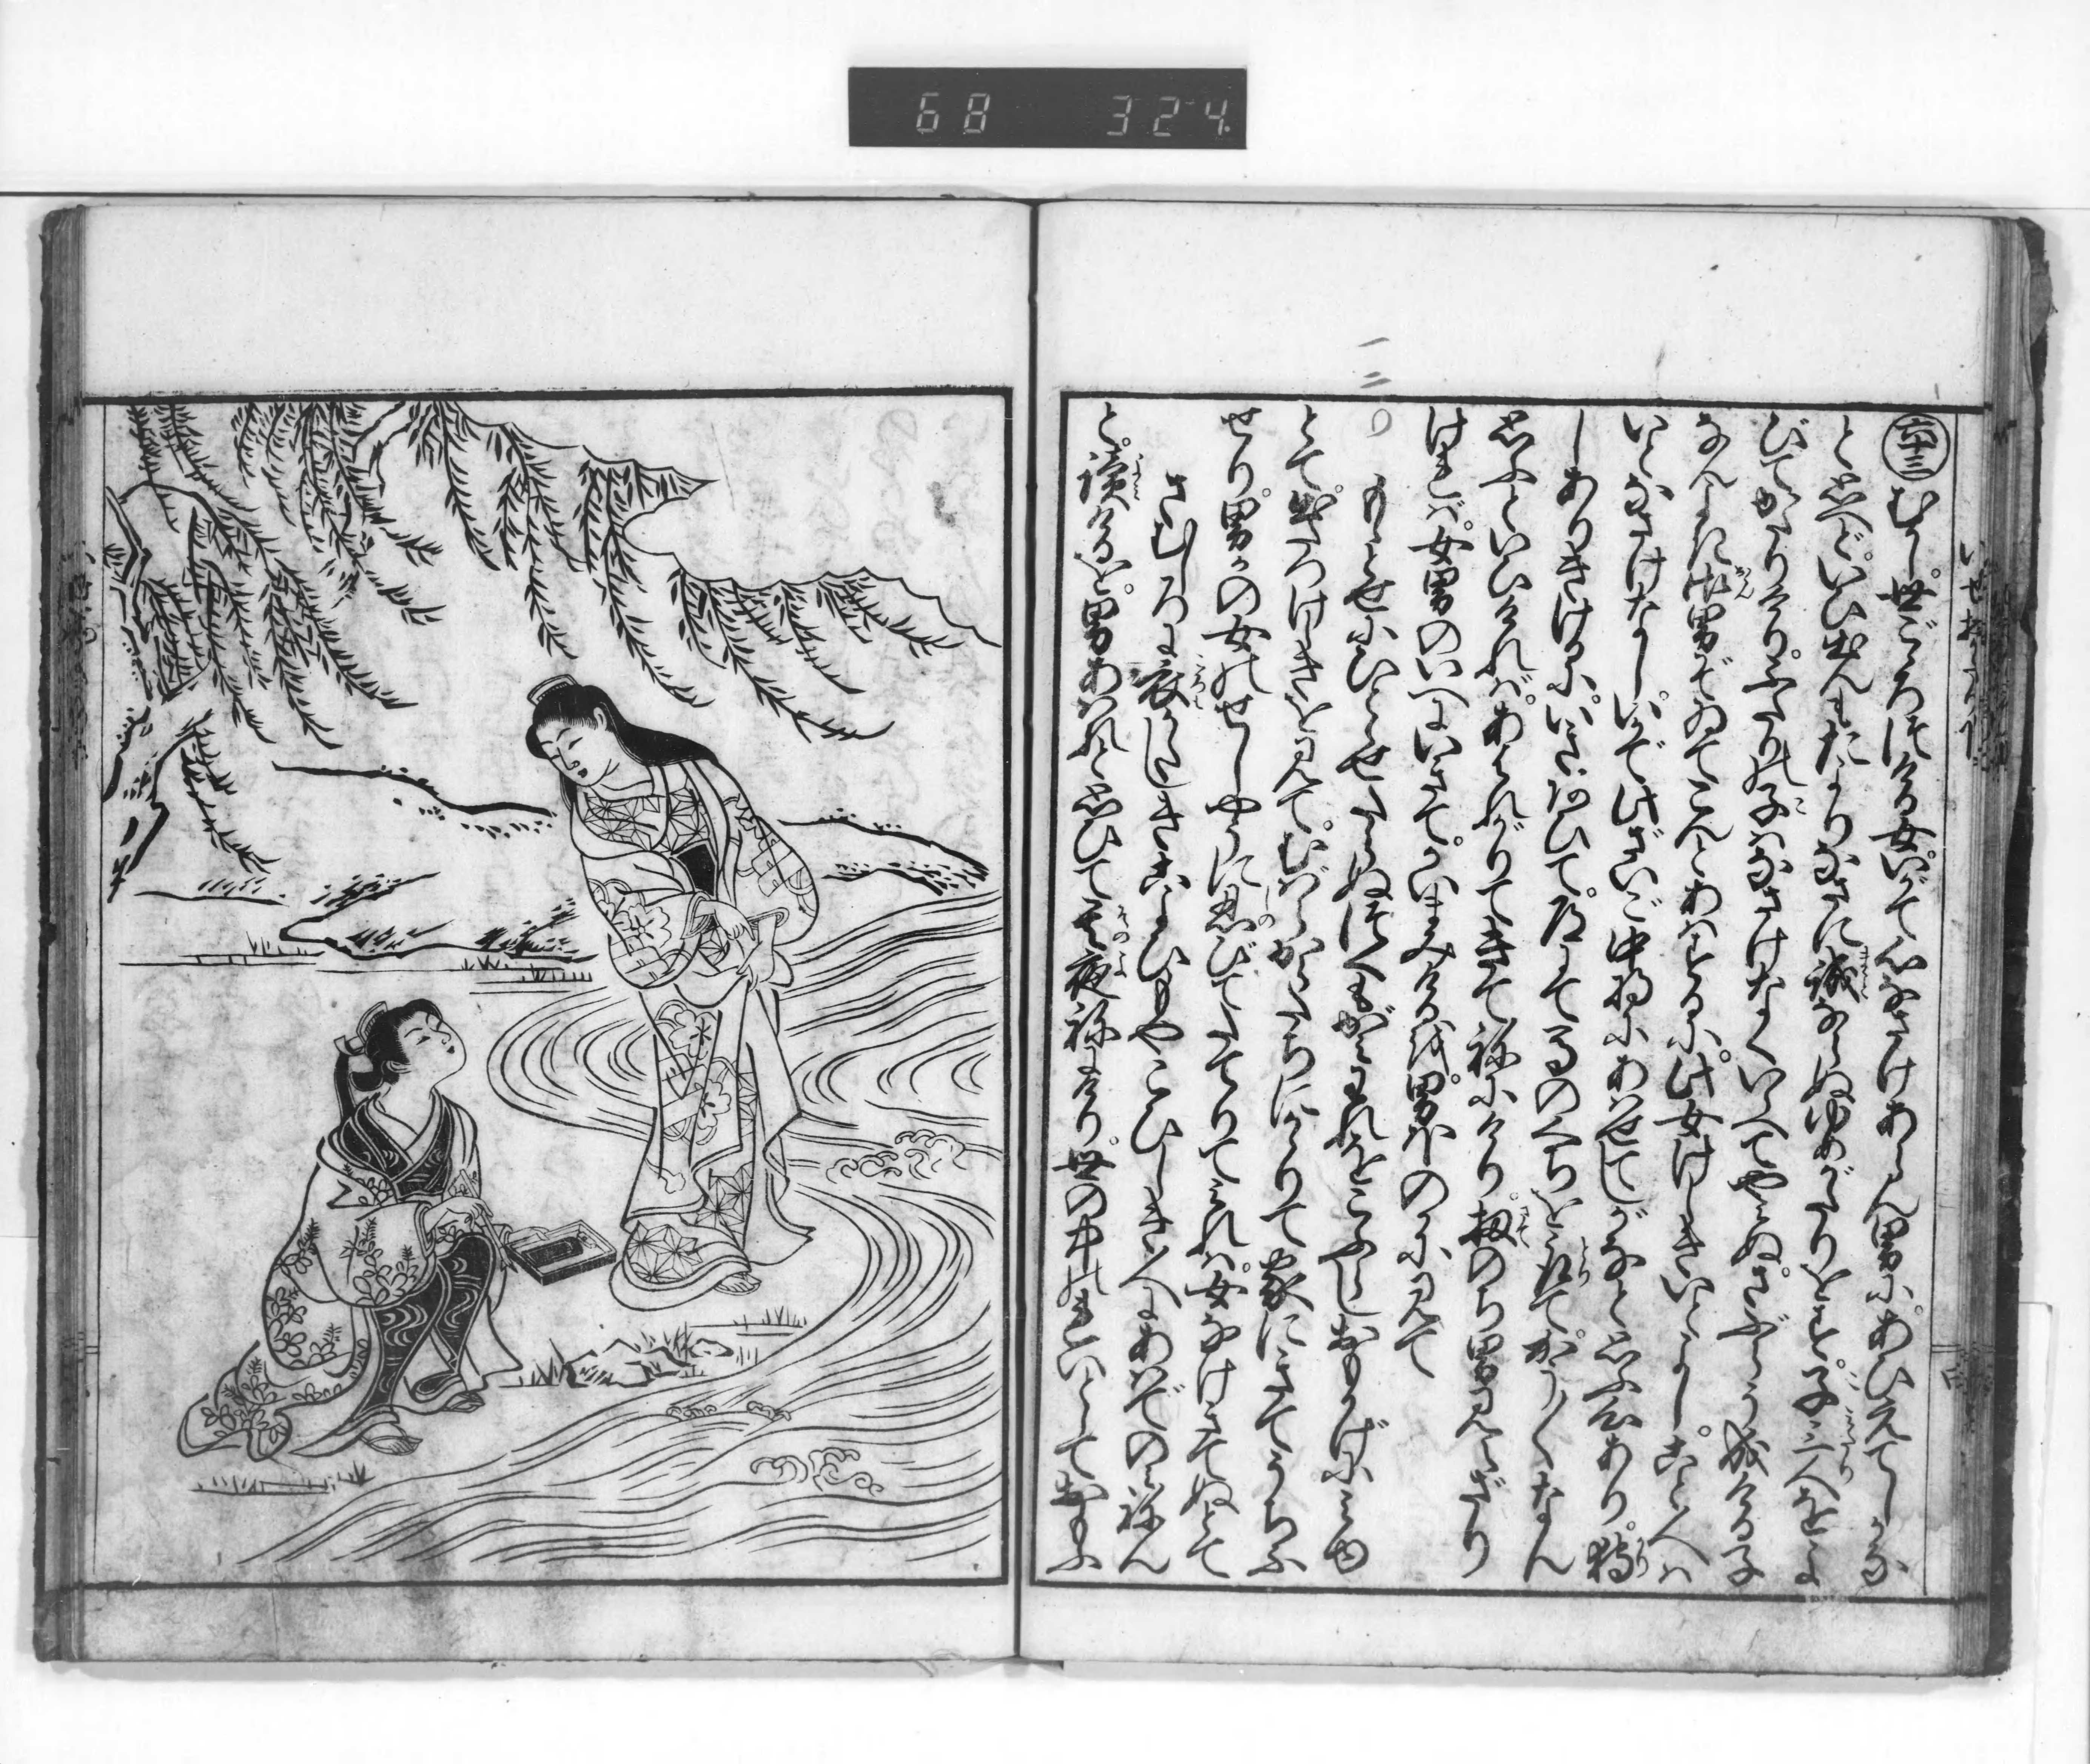 68 324
いせ物かたり下
六十三
むかし世ごゝろつける女いかで心なさけあらん男にあひえてしかな
と思へどいひ出んもたよりなさに誠ならぬゆめがたりをす子三人をよ
びてかたりけりふたりの子はなさけなくいらへてやみぬさぶらう成ける子
なんよき御男ぞいてこんとあはするに此女けしきいとよしこと人は
いとなさけなしいかで此ざいご中将にあはせてしがなと思ふ心あり狩
しありきけるにいきあひて道にて馬のくちをとりてかう〳〵なん
思ふといひければあはれがりてきて祢にけり扨のち男見えざり
ければ女男のいへにいきてかいまみけるを男ほのかに見て
もゝとせにひとゝせたらぬつくもがみわれをこふらしおもかげにみゆ
とて出たつけしきを見てむばらからたちにかゝりて家にきてうちふ
せり男かの女のせしやうに忍びてたてりてみれは女なけきてぬとて
さむしろに衣かたしきこよひもやこひしき人にあはでのみ祢ん
と読けるを男あはれと思ひて其夜祢にけり世の中のれいとしておもふ